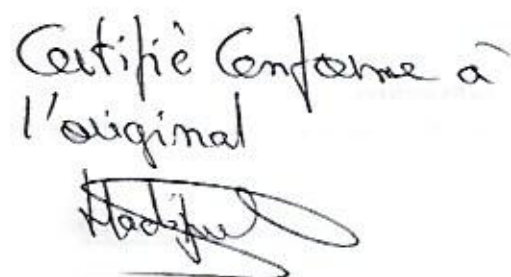 Certifié Conforme à
l'original